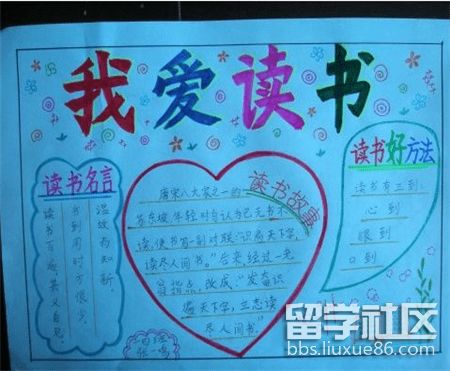 我爱读书
读书名言
温故而知新。
书到用时方恨少。
读书百遍,其义自见。
读书故事
唐宋八大家之一的
苏东坡,年轻时自认为已无书不
读,便书写一副对联"识遍天下字,
读尽人间书。"后来经过一老
翁指点,改成"发奋识
遍天下字,立志读
尽人间书"。
张一鸣
读书好方法
读书有三到:
心到
眼到
口到
留学社区
bbs.liuxue86.com